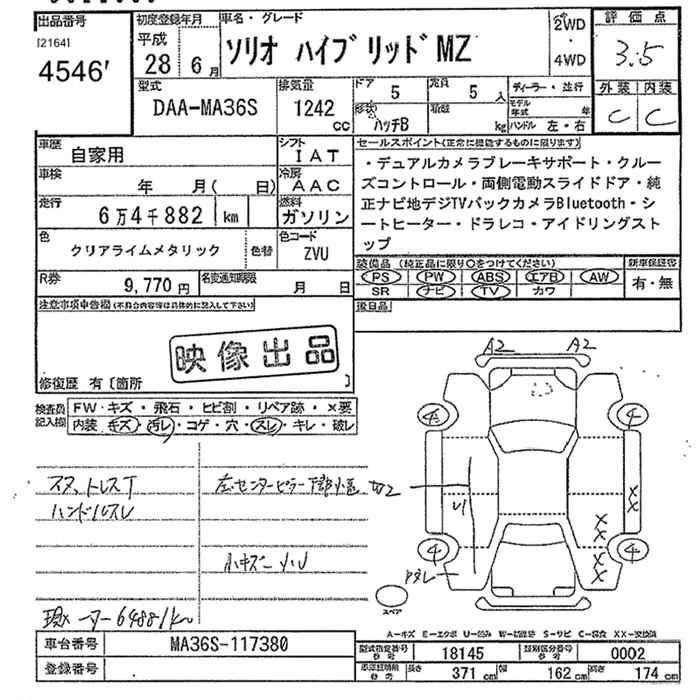 出品番号
[2164]
4546'
初度登録年月
平成
28 6月
車名・グレード
ソリオ ハイブリッドMZ
2WD
・
4WD
評価点
3.5
外装 内装
C C
型式
DAA-MA36S
排気量
1242
cc
ドア 5
定員 5 人
形状
ハッチB
積載
kg
ディーラー・並行
モデル年式 年
ハンドル 左・右
車歴 自家用
シフト IAT
車検 年 月( 日)
冷房 AAC
走行 6万4千882 km
燃料 ガソリン
色 クリアライムメタリック 色替
色コード ZVU
R券 9,770円
名変通知期限 月 日
セールスポイント(正常に機能するものに限ります)
・デュアルカメラブレーキサポート・クルー
ズコントロール・両側電動スライドドア・純
正ナビ地デジTVバックカメラBluetooth・シ
ートヒーター・ドラレコ・アイドリングスト
ップ
装備品 (純正品に限り○をつけてください)
新車保証書
PS PW ABS エアB AW
SR ナビ TV カワ
有・無
後日品
注意事項申告欄(不具合内容等は具体的に記入して下さい)
映像出品
修復歴 有〔箇所 〕
検査員
記入欄
FW・キズ・飛石・ヒビ割・リペア跡・×要
内装・キズ・汚レ・コゲ・穴・スレ・キレ・破レ
ハンドルスレ
A2 A2
4 4
U1
4 4
×
×
×
×
×
×
スペア
A-キズ E-エクボ U-凹み W-補修跡 S-サビ C-腐食 XX-交換済
車台番号 MA36S-117380
登録番号
型式指定番号 参考 18145
類別区分番号 参考 0002
長さ 371 cm
幅 162 cm
高さ 174 cm